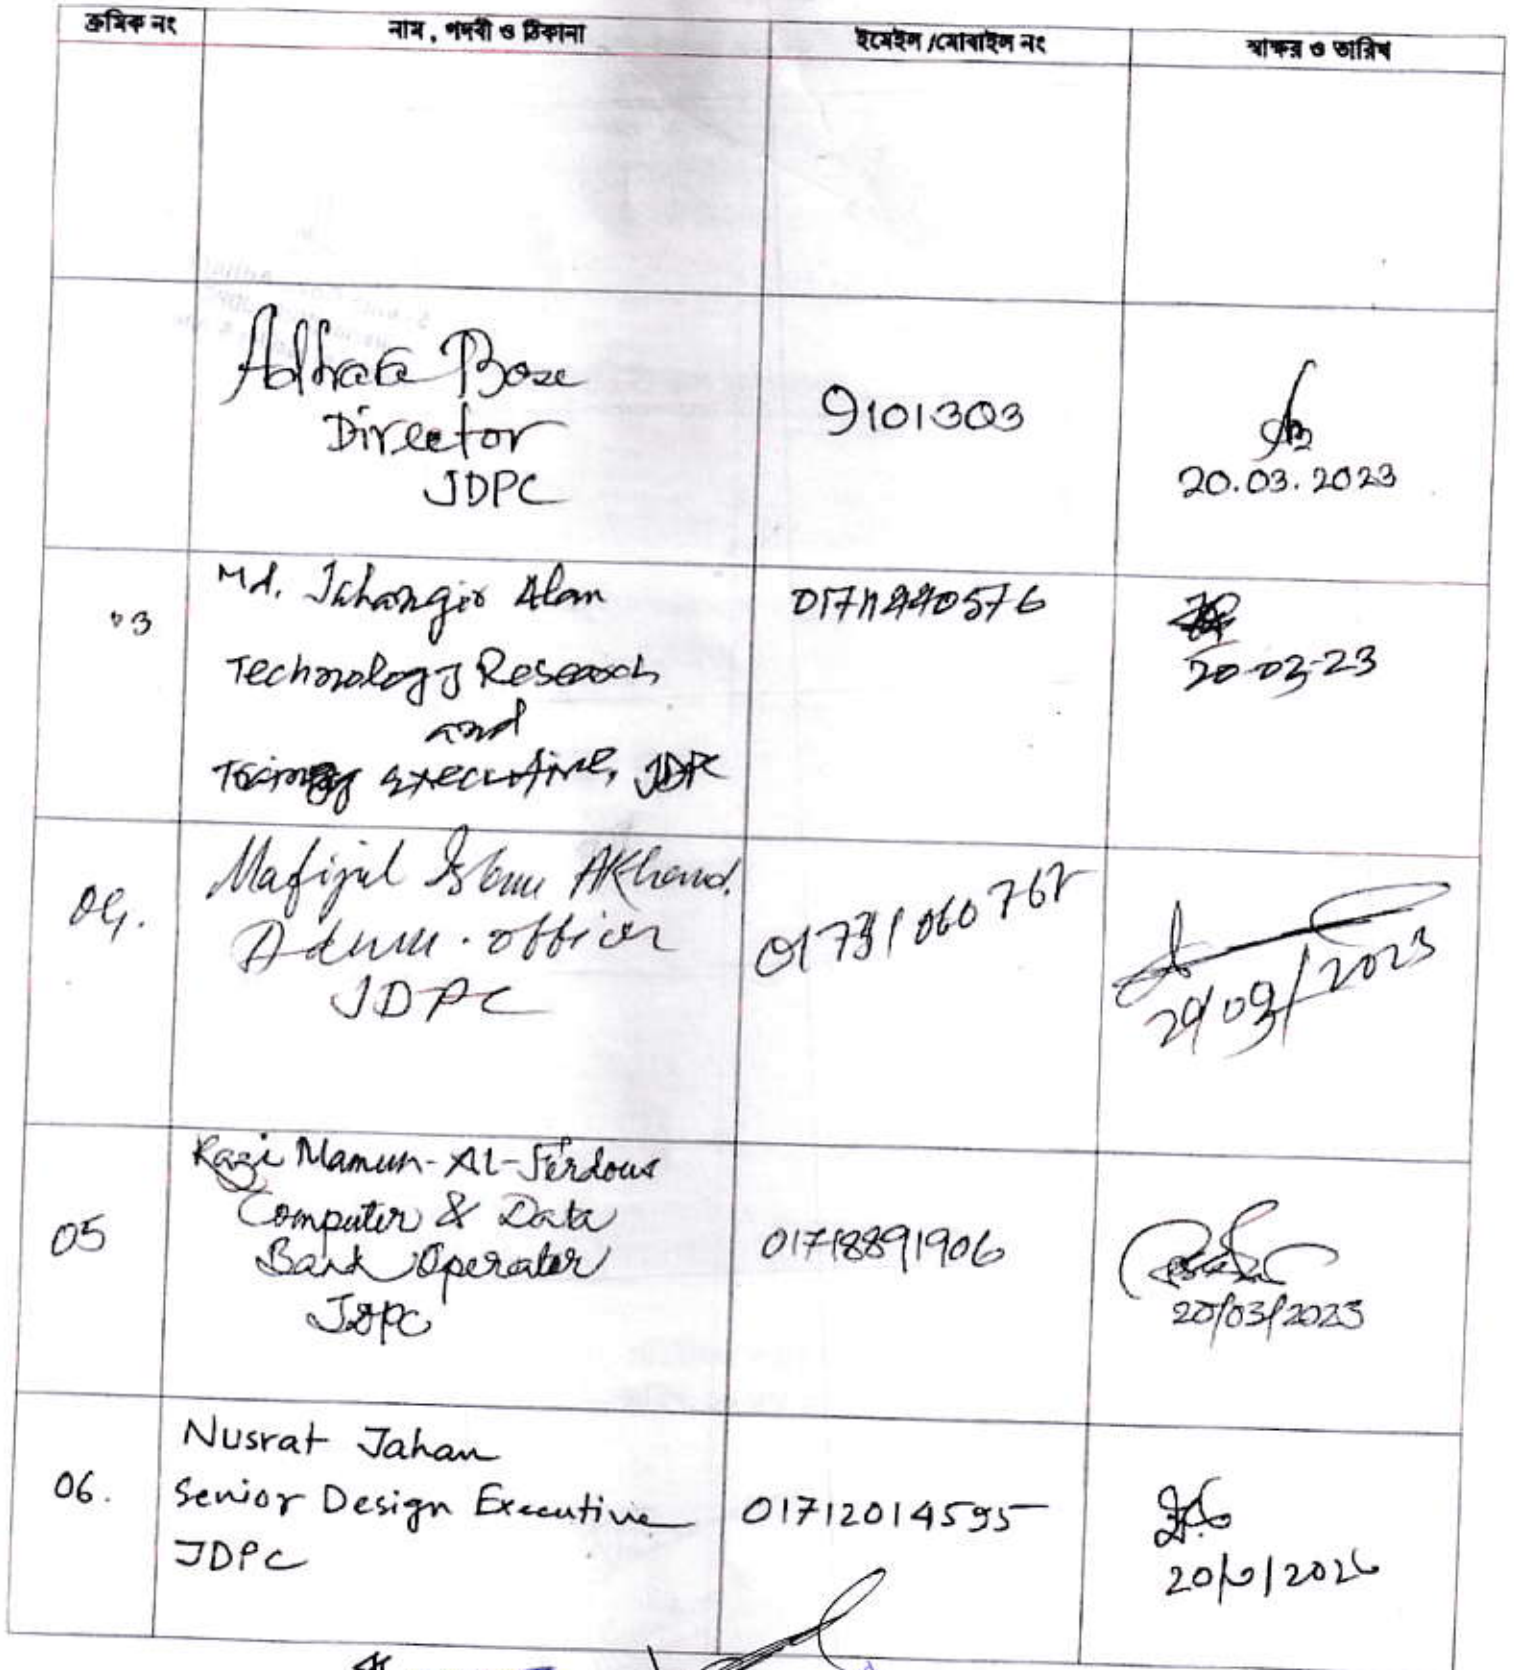 ক্রমিক নং নাম, পদবী ও ঠিকানা ইমেইল /মোবাইল নং স্বাক্ষর ও তারিখ
Bose
Director
JDPC
9101303
20.03.2023
03
Md. Jahangir Alam
Technology Research
and
executive, JDPC
20-03-23
04.
Mafijul Islam Akhand.
Admn. officer
JDPC
/2023
05
Kazi Mamun-Al-Ferdous
Computer & Data
Bank Operator
JDPC
01718891906
20/03/2023
06.
Nusrat Jahan
Senior Design Executive
JDPC
01712014595